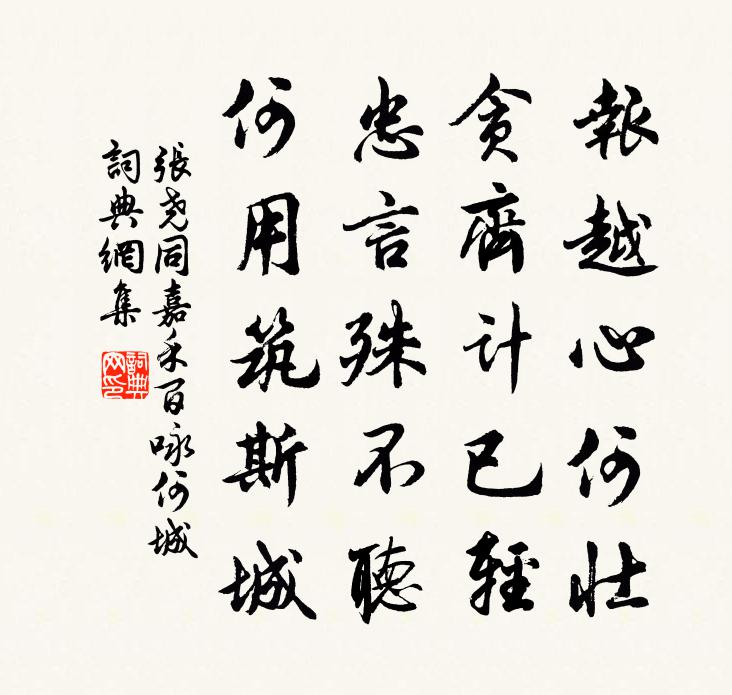 報越心何壯
貪齊計已輕
忠言殊不聽
何用筑斯城
張堯同嘉禾百咏何城
詞典網集
詞典
网印